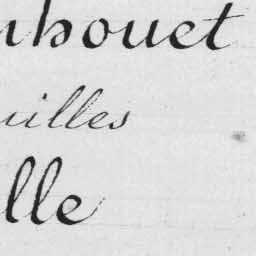 nhouet
uilles
lle